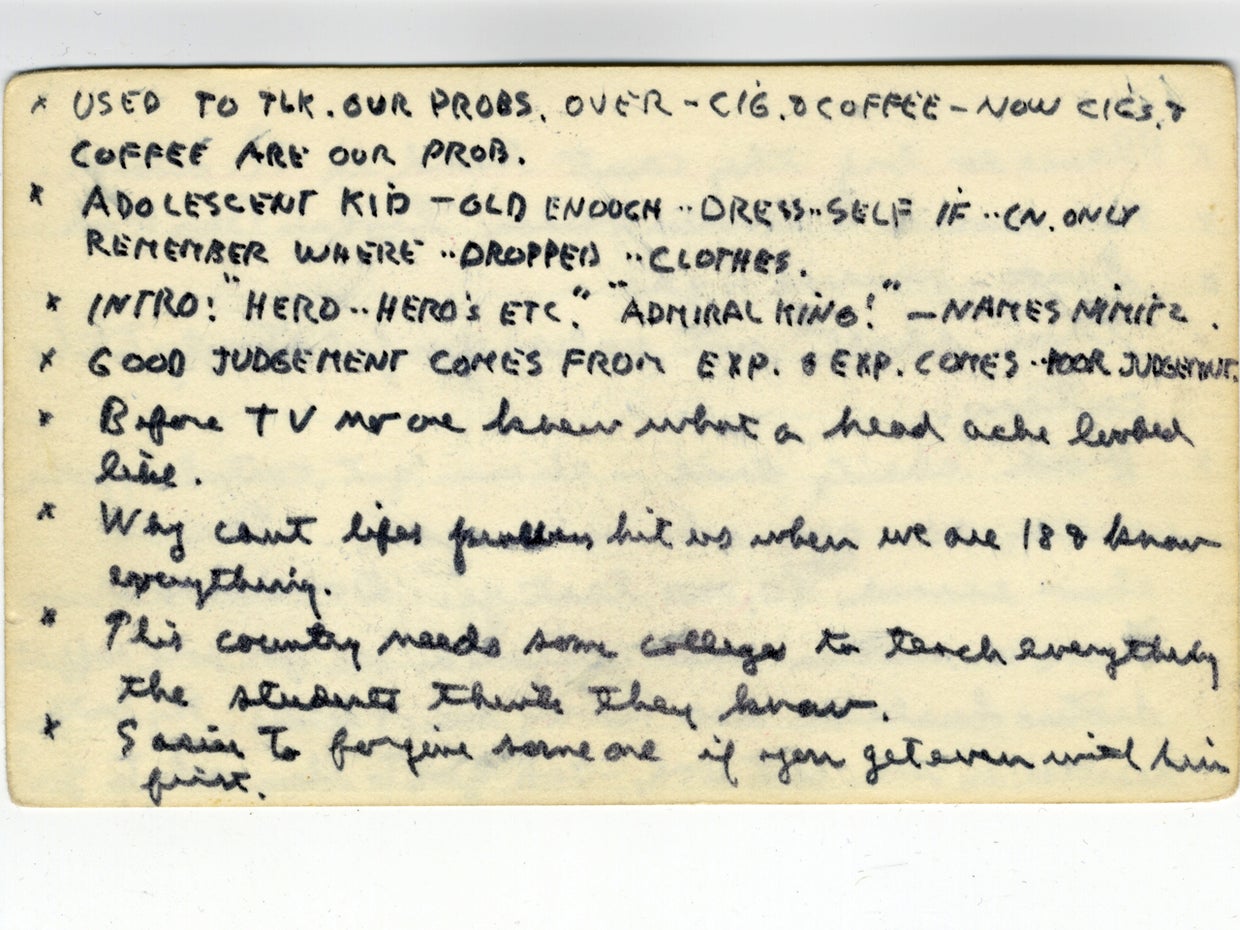 x USED TO TLK. OUR PROBS. OVER - CIG. & COFFEE - NOW CIGS. &
COFFEE ARE OUR PROB.
x ADOLESCENT KID - OLD ENOUGH ·· DRESS ·· SELF IF ·· CN. ONLY
REMEMBER WHERE ·· DROPPED ·· CLOTHES.
x INTRO: "HERO ·· HERO'S ETC." "ADMIRAL KING!" - NAMES NIMITZ.
x GOOD JUDGEMENT COMES FROM EXP. & EXP. COMES ·· POOR JUDGEMNT.
x Before TV no one knew what a head ache looked
like.
x Why cant lifes problems hit us when we are 18 & know
everything.
x This country needs some colleges to teach everything
the students think they know.
x Easier to forgive someone if you get even with him
first.